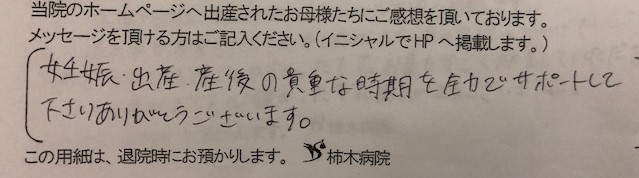 当院のホームページへ出産されたお母様たちにご感想を頂いております。
メッセージを頂ける方はご記入ください。（イニシャルでHPへ掲載します。）
妊娠・出産・産後の貴重な時期を全力でサポートして
下さりありがとうございます。
この用紙は、退院時にお預かりします。 柿木病院